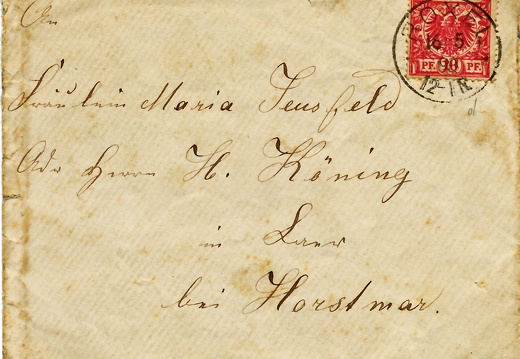 An
Fräulein Maria Teusfeld
Adr Herrn H. Köning
in Laer
bei Horstmar.
ROXEL
16 5
90
12-1N.
10 PF. PF.